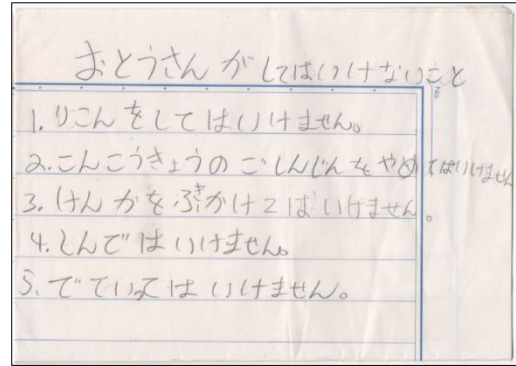 おとうさんがしてはいけないこと
1.りこんをしてはいけません。
2.こんこうきょうのごしんじんをやめてはいけません
3.けんかをふきかけてはいけません。
4.しんではいけません。
5.でていってはいけません。